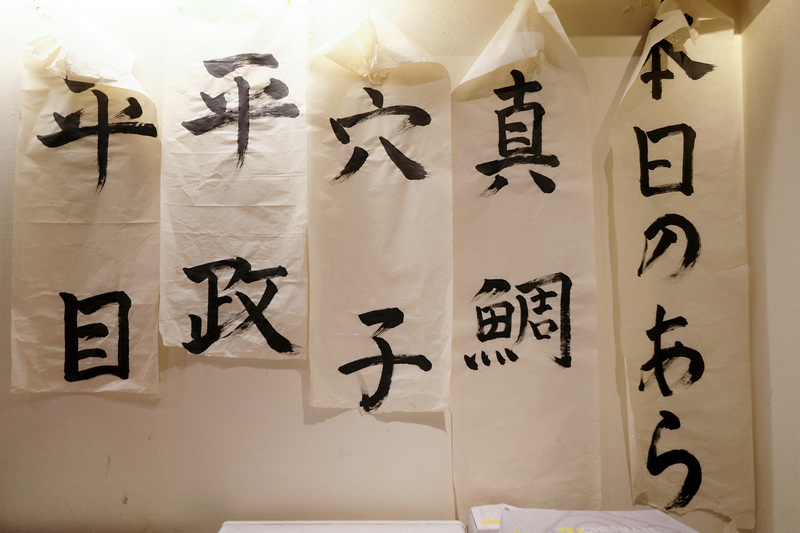 本日のあら
真鯛
穴子
平政
平目